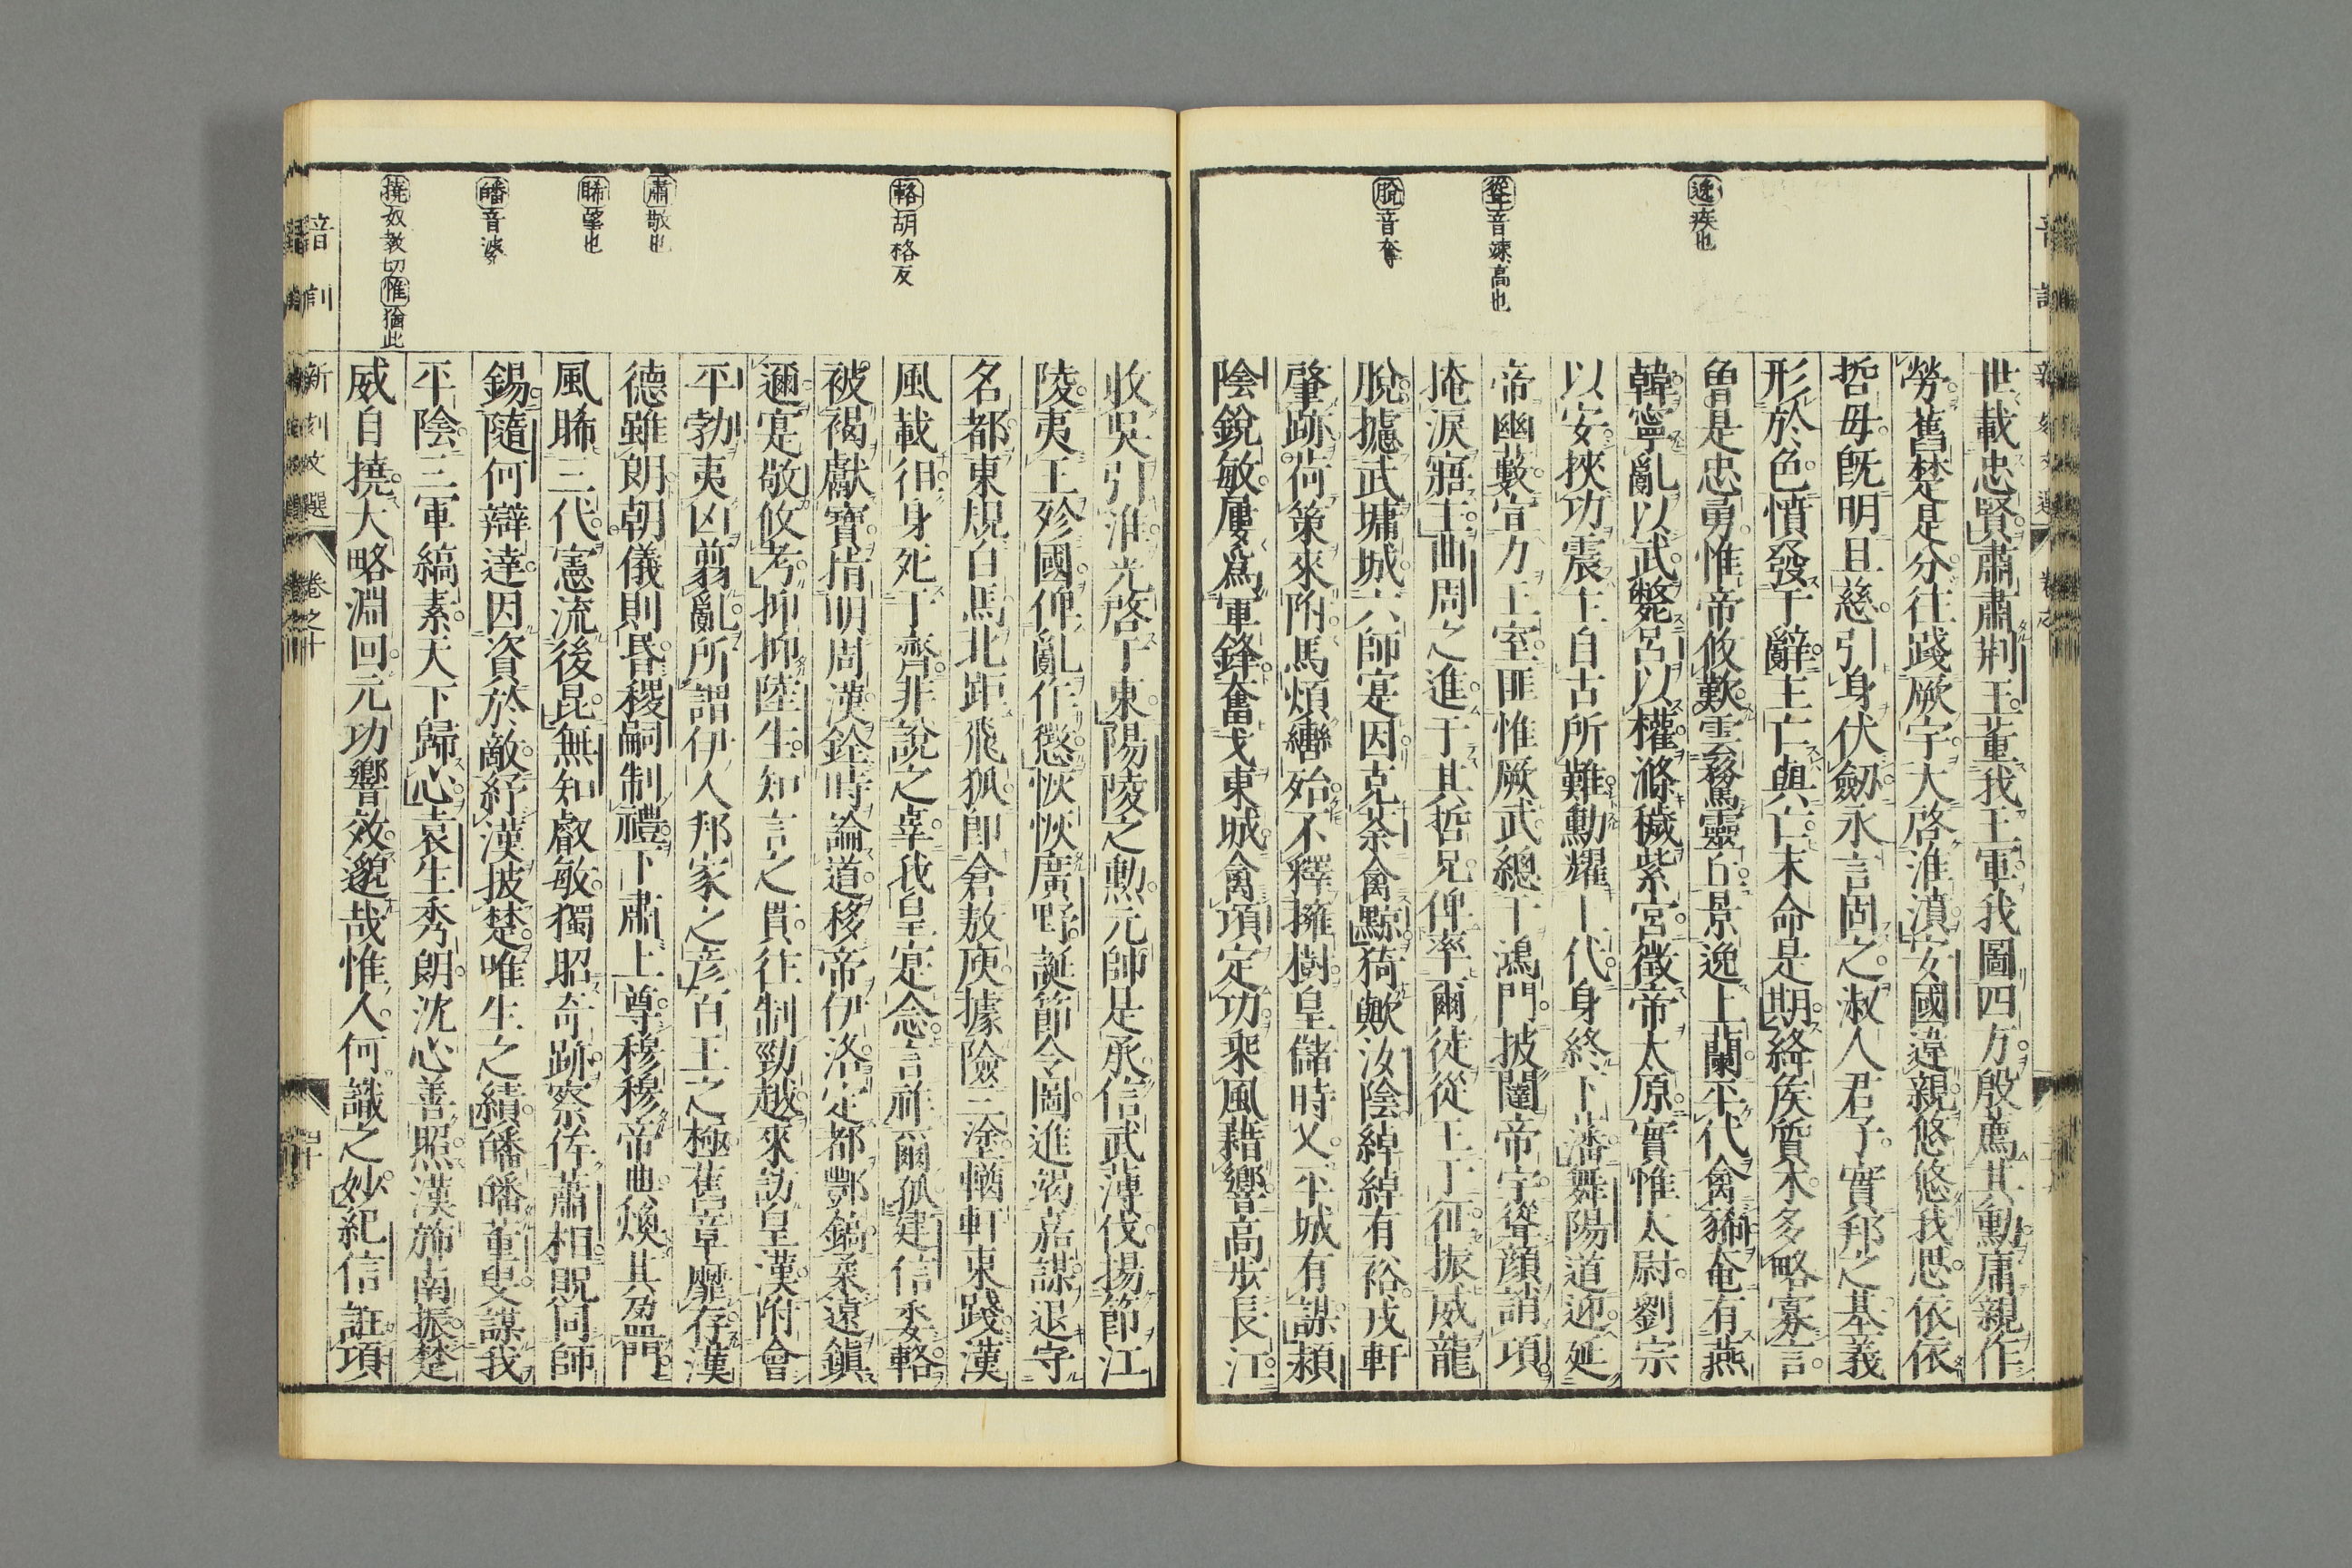 逸疾也
聳音竦高也
脫音奪
世載忠賢肅肅荆王董我三軍我圖四方殷薦其勳庸親作
勞舊楚是分往踐厥宇大啓淮濆安國違親悠悠我思依依
哲母既明且慈引身伏劒永言固之淑人君子實邦之基義
形於色憤發于辭主亡與亡末命是期絳矦質木多略寡言
曾是忠勇惟帝攸歎雲騖靈丘景逸上蘭平代禽豨奄有燕
韓寧亂以武斃呂以權滌穢紫宮徵帝太原實惟太尉劉宗
以安挾功震主自古所難勳耀上代身終下藩舞陽道迎延
帝幽藪宣力王室匪惟厥武總干鴻門披闥帝宇聳顏誚項
掩淚寤主曲周之進于其哲兄俾率爾徒從王于征振威龍
脫攄武墉城六師寔因克荼禽黥猗歟汝陰綽綽有裕戎軒
肇跡荷策來附馬煩轡殆不釋擁樹皇儲時乂平城有謀潁
陰銳敏屢爲軍鋒奮戈東城禽項定功乘風藉響高步長江
輅胡格反
肅敬也
睎望也
皤音婆
撓奴敎切惟猶此
收吳引淮光啓于東陽陵之勲元帥是承信武薄伐揚節江
陵夷王殄國俾亂作懲恢恢廣野誕節令圖進謁嘉謀退守
名都東規白馬北距飛狐即倉敖庾據險三塗輶軒東踐漢
風載徂身死于齊非說之辜我皇寔念言祚爾孤建信委輅
被褐獻寶指明周漢銓時論道移帝伊洛定都酆鎬柔遠鎭
邇寔敬攸考抑抑陸生知言之貫往制勁越來訪皇漢附會
平勃夷凶翦亂所謂伊人邦家之彦百王之極舊章靡存漢
德雖朗朝儀則昏稷嗣制禮下肅上尊穆穆帝典煥其盈門
風睎三代憲流後昆無知叡敏獨昭奇跡察侔蕭相貺同師
錫隨何辯達因資於敵紓漢披楚唯生之績皤皤董叟謀我
平陰三軍縞素天下歸心袁生秀朗沈心善照漢斾南振楚
威自撓大略淵回元功響效邈哉惟人何識之妙紀信誑項
音訓 新刻文選 卷之十 四十